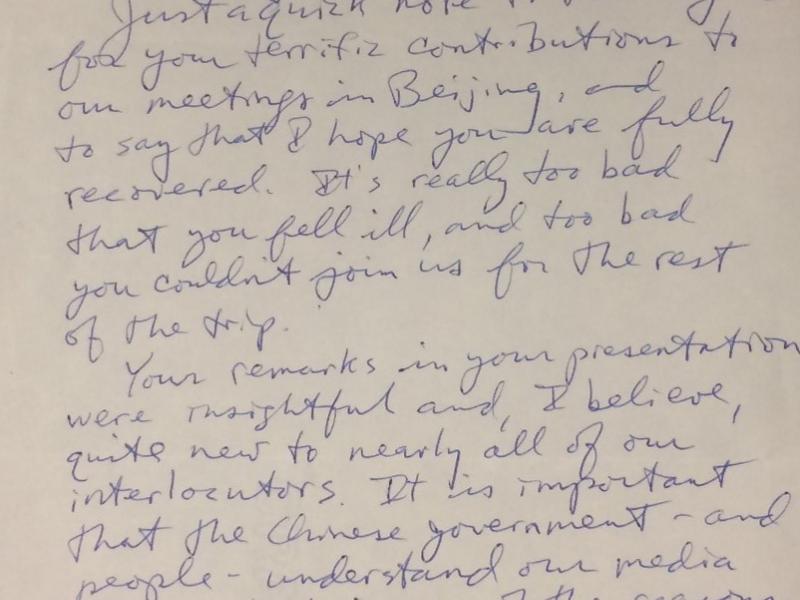 Just a quick note
for your terrific contributions to
our meetings in Beijing, and
to say that I hope you are fully
recovered. It's really too bad
that you fell ill, and too bad
you couldn't join us for the rest
of the trip.
Your remarks in your presentation
were insightful and, I believe,
quite new to nearly all of our
interlocutors. It is important
that the Chinese government - and
people - understand our media
of the reasons